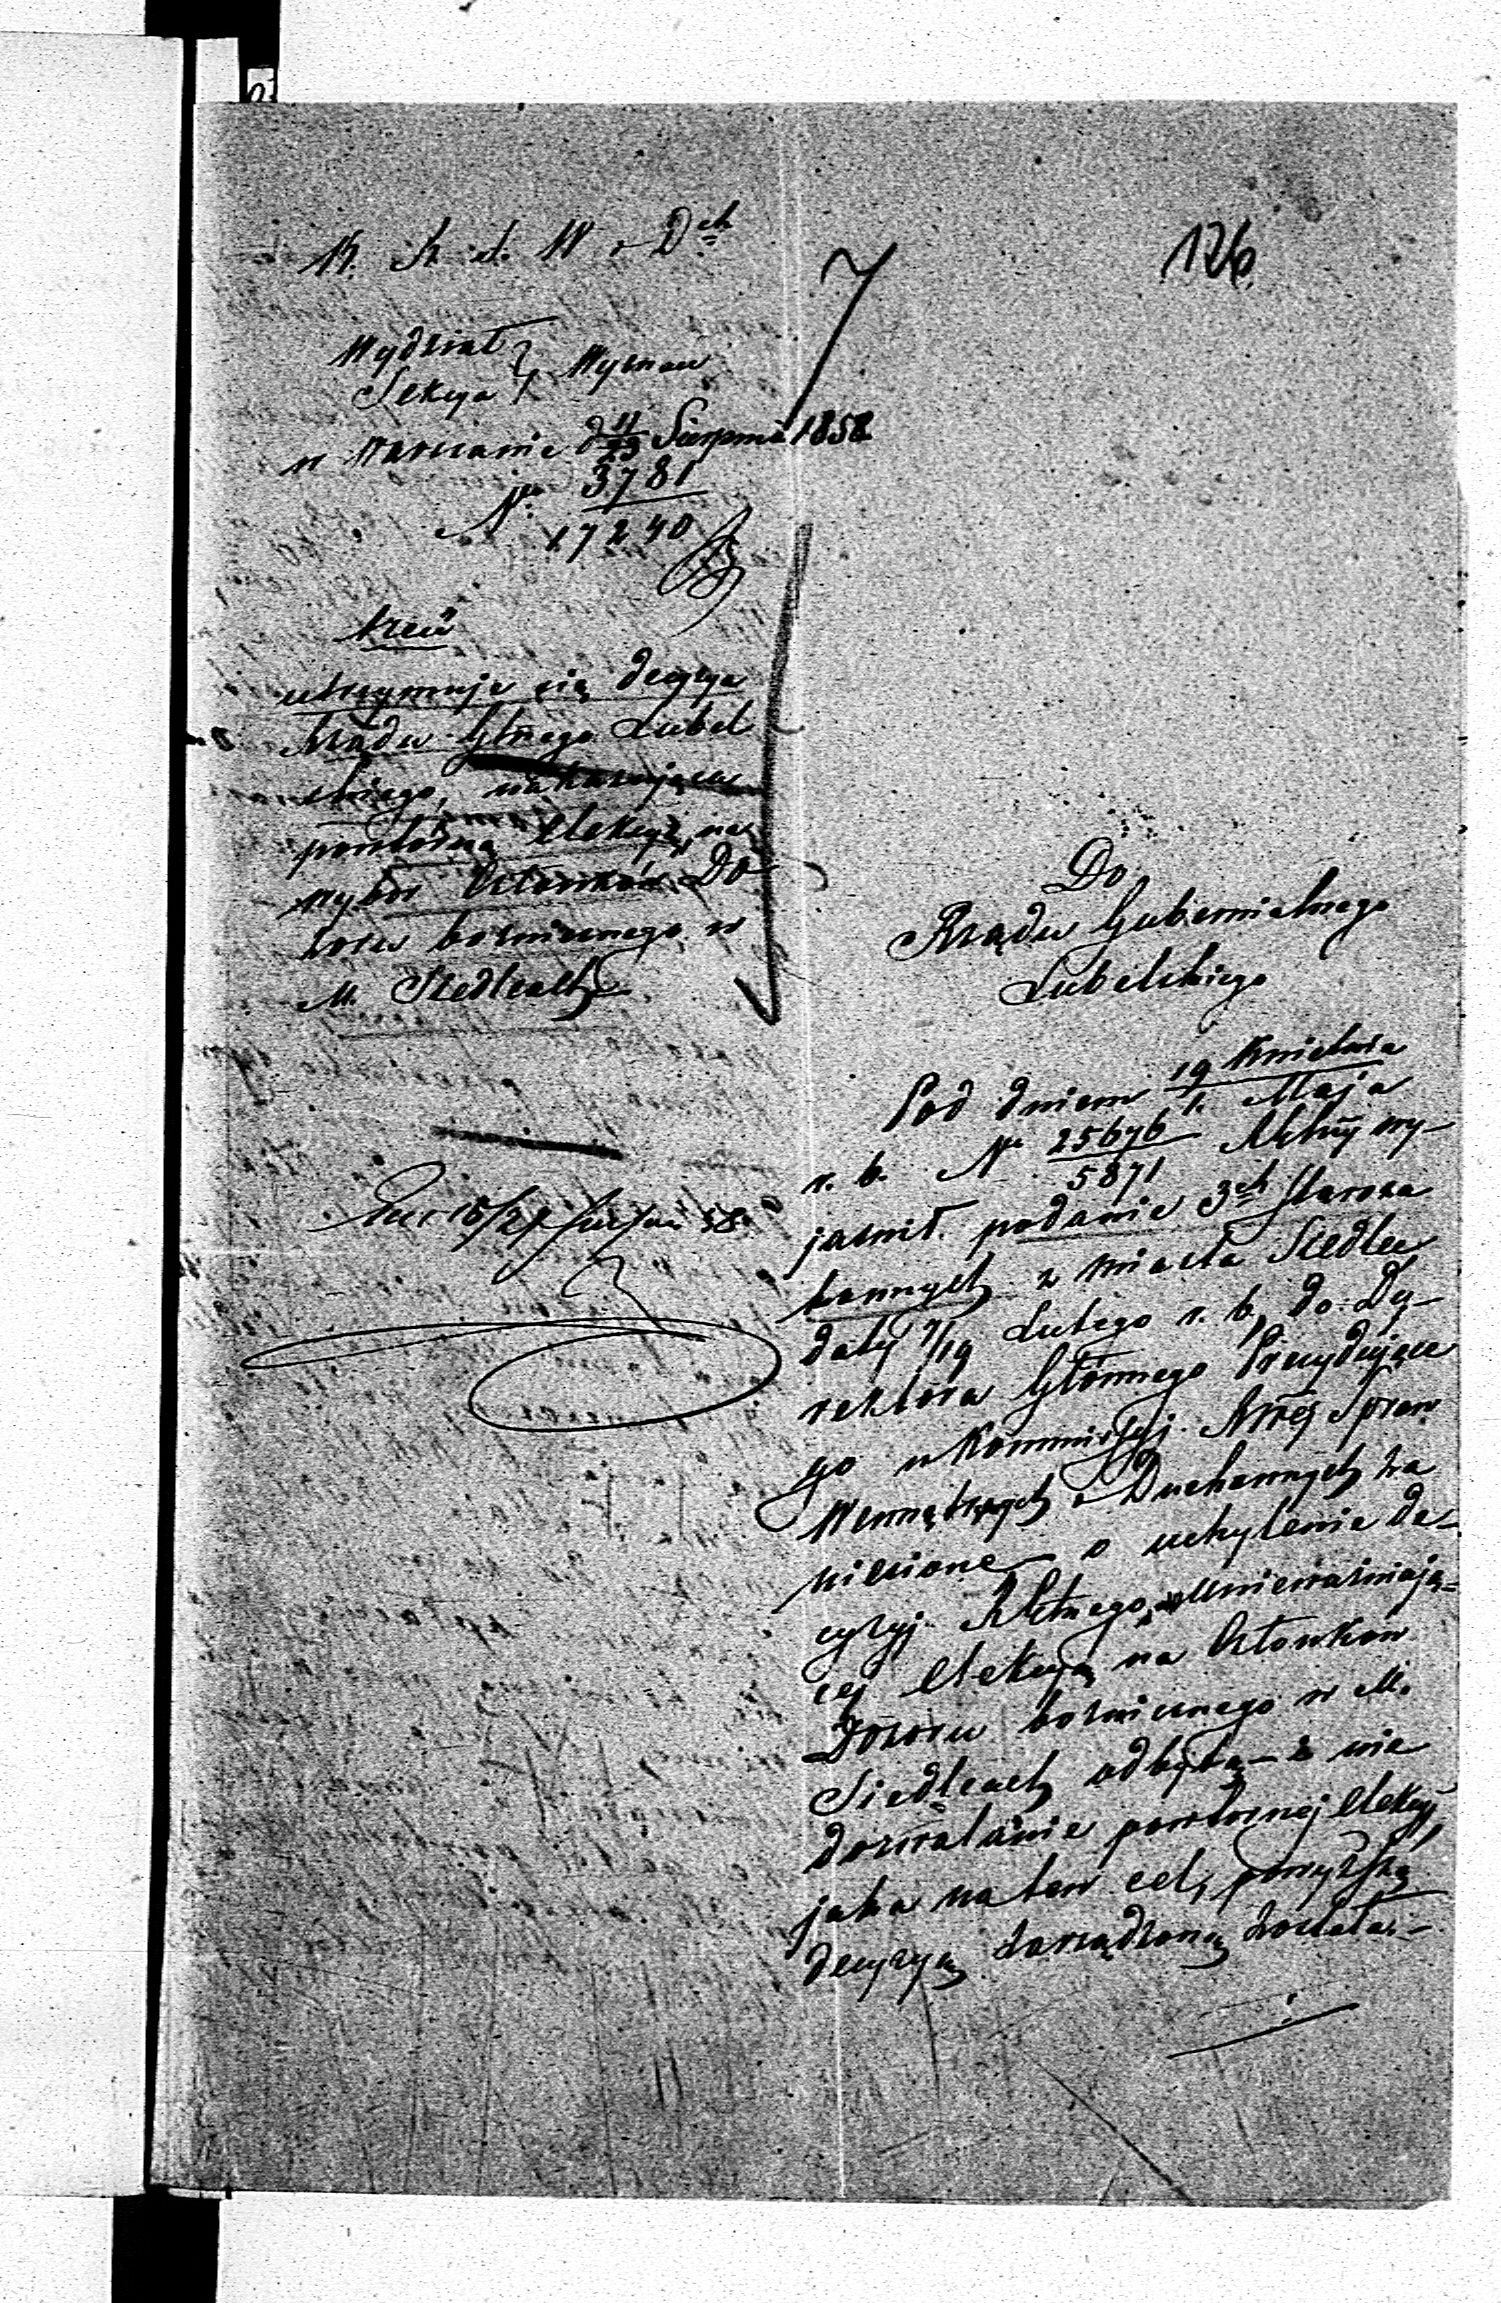 126.
K. R. S. W. i D^ch
Wydział
Sekcya } Wyznań
w Warszawie d 11/23 Sierpnia 1858
N° 3781/17240
treść
utrzymuje się decyzya
Rządu Gbn̄ego Lubel
skiego, nakazująca
powtórną elekcyą na
wybór Członków Do
zoru bożniczego w
M. Siedlcach
Do
Rządu Gubernialnego
Lubelskiego
Pod dniem 19 Kwietnia/1. Maja
r. b. N° 25676/5871 Rktny wy-
jaśnił. podanie 3ch Staroza
konnych z miasta Siedlec
daty 7/19 Lutego r. b. do Dy-
rektora Głównego Prezydujące
go w Kommissyi Rżej Spraw
Wewnętrznych i Duchownych za
niesione o uchylenie de-
cyzyi Rktnego, unieważniają-
cej elekcyą na Członków
Dozoru bożniczego w M.
Siedlcach odbytą - i nie
dozwalanie powtórnej elekcyi,
jaka na ten cel, powyższą
decyzyą zarządzoną została. -